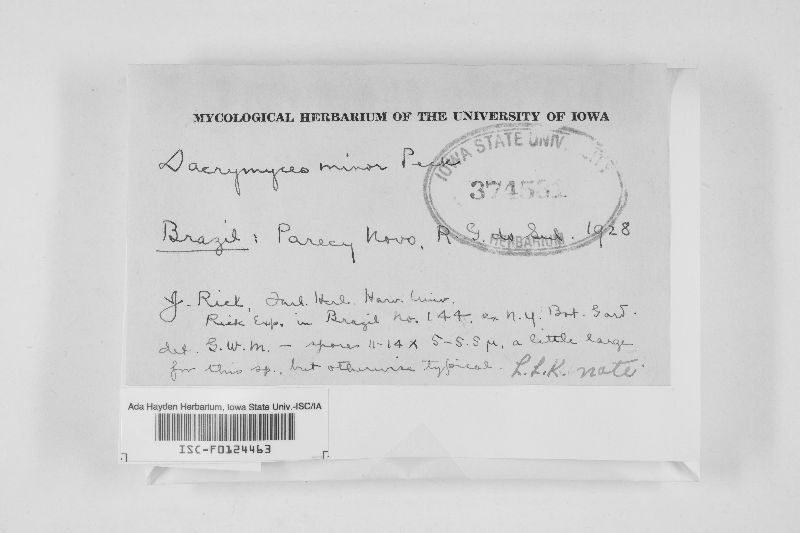 MYCOLOGICAL HERBARIUM OF THE UNIVERSITY OF IOWA
Dacrymyces minor Peck
IOWA STATE UNIVERSITY
HERBARIUM
Brazil: Parecy Novo, R. G. do Sul. 1928
J. Rick, Farl. Herb. Harv. Univ.
Rick Exp. in Brazil No. 144, ex N.Y. Bot. Gard.
det. G.W.M. - spores 11-14 x 5-5.5 µ, a little large
for this sp., but otherwise typical. L.L.K. note.
Ada Hayden Herbarium, Iowa State Univ.-ISC/IA
ISC-F0124463